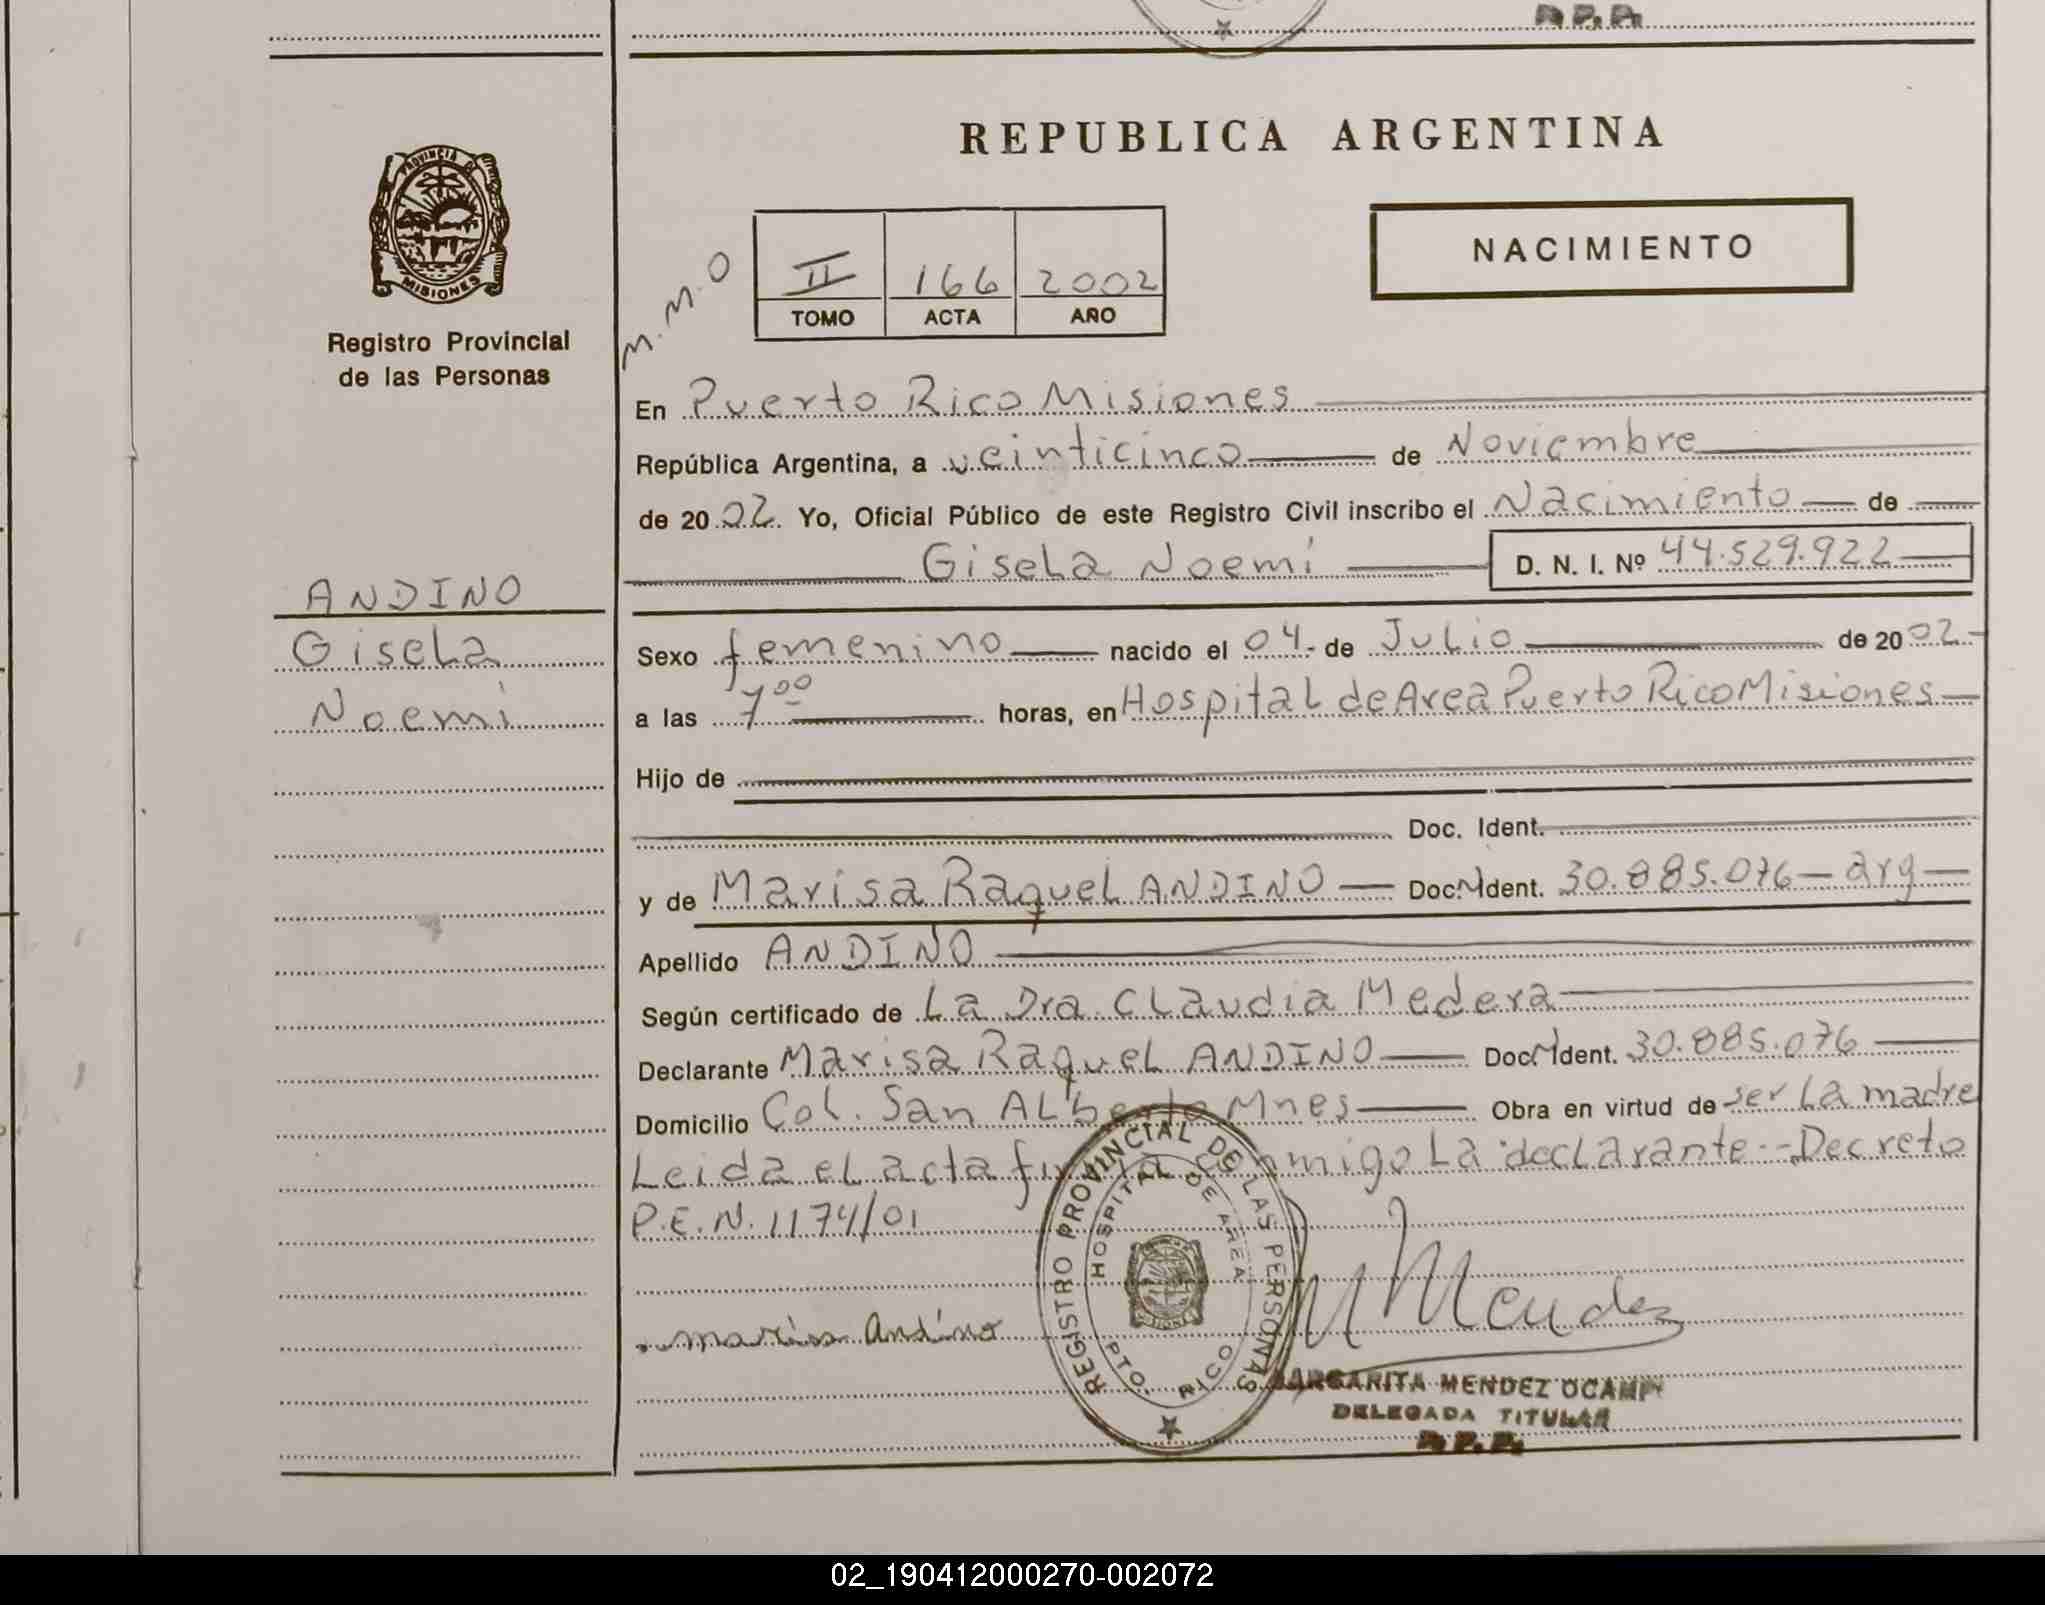 R.P.P.
REPUBLICA ARGENTINA
PROVINCIA DE
MISIONES
Registro Provincial
de las Personas
NACIMIENTO
M.M.O
II 166 2002
TOMO ACTA AÑO
En Puerto Rico Misiones
República Argentina, a veinticinco de Noviembre
de 2002. Yo, Oficial Público de este Registro Civil inscribo el Nacimiento de
Gisela Noemí D. N. I. Nº 44.529.922
ANDINO
Gisela
Noemí
Sexo femenino nacido el 04 de Julio de 2002
a las 7:00 horas, en Hospital de Area Puerto Rico Misiones
Hijo de
Doc. Ident.
y de Marisa Raquel ANDINO Doc. N Ident. 30.885.076 - arg
Apellido ANDINO
Según certificado de La Dra. Claudia Medera
Declarante Marisa Raquel ANDINO Doc. N Ident. 30.885.076
Domicilio Col. San Alberto Mnes Obra en virtud de ser la madre
Leida el acta firma conmigo la declarante.- Decreto
P.E.N. 1174/01
REGISTRO PROVINCIAL DE LAS PERSONAS
HOSPITAL DE AREA
PTO. RICO
marisa Andino
M Mendez
MARGARITA MENDEZ OCAMPO
DELEGADA TITULAR
R.P.P.
02_190412000270-002072